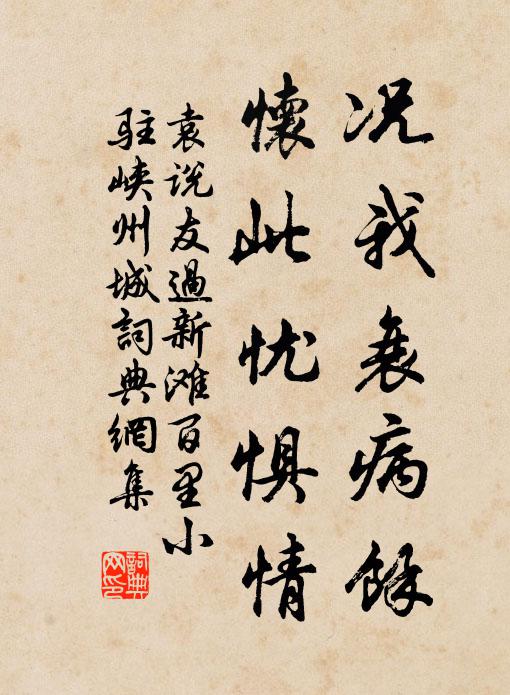 况我衰病馀
懷此忧惧情
袁说友過新滩百里小
駐峡州城詞典網集
詞典网印